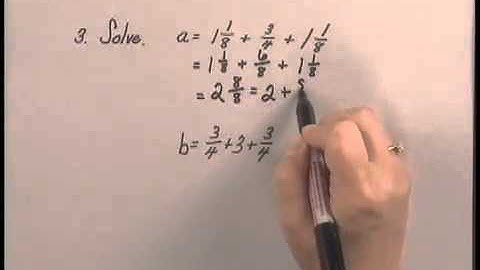 3. Solve. a = 1 1/8 + 3/4 + 1 1/8
= 1 1/8 + 6/8 + 1 1/8
= 2 8/8 = 2 +
b = 3/4 + 3 + 3/4